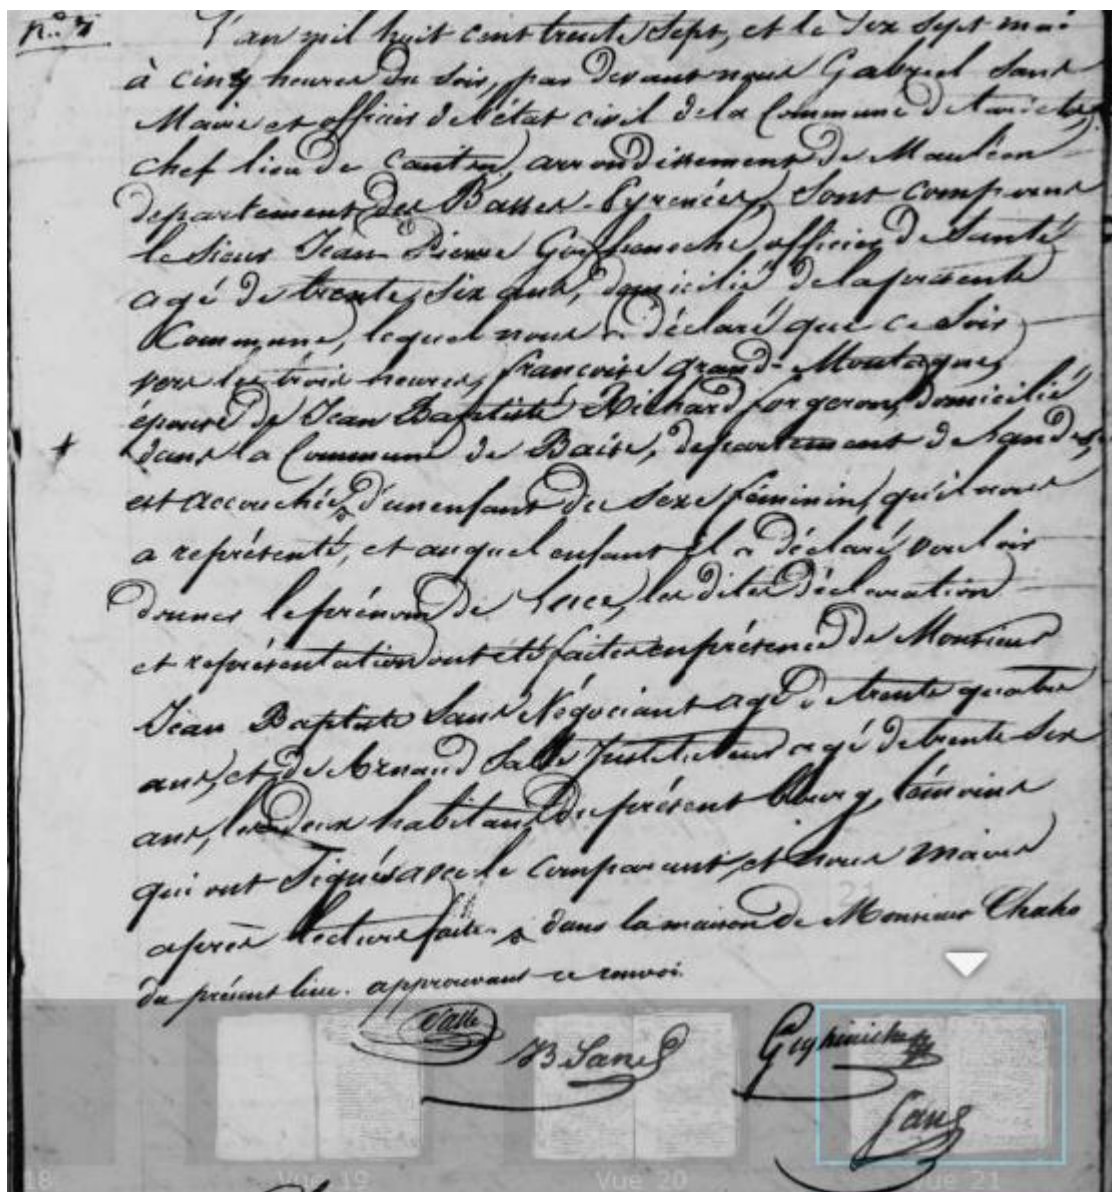 L'an mil huit cent trente sept, et le dix sept mai
à cinq heures du soir, par devant nous Gabriel Sans
Maire et officier de l'état civil de la Commune de
chef lieu de canton, arrondissement de Mauléon
departement des Basses-Pyrenées, Sont comparus
le Sieur Jean Pierre officier de Santé
agé de trente six ans, domicilié de la présente
Commune, lequel nous a déclaré que ce Soir
vers les trois heures, francoise grand-Montagne,
épouse de Jean Baptiste Richard forgeron, domicilié
dans la Commune de departement de
est accouchée d'un enfant de Sexe féminin, qu'il nous
a représenté, et auquel enfant il a déclaré vouloir
donner le prénom de les dites déclaration
et représentation ont été faites en présence de Monsieur
Jean Baptiste Sans Négociant agé de trente quatre
ans, et de Arnaud Salle Instituteur agé de trente Six
ans, les deux habitans du présent bourg, témoins
qui ont Signés avec le comparant, et nous maire
après lecture faite. dans la maison de Monsieur Chaho
du présent lieu. approuvant ce renvoi.
Salle
JB Sans
Sans
18
Vue 19
Vue 20
Vue 21